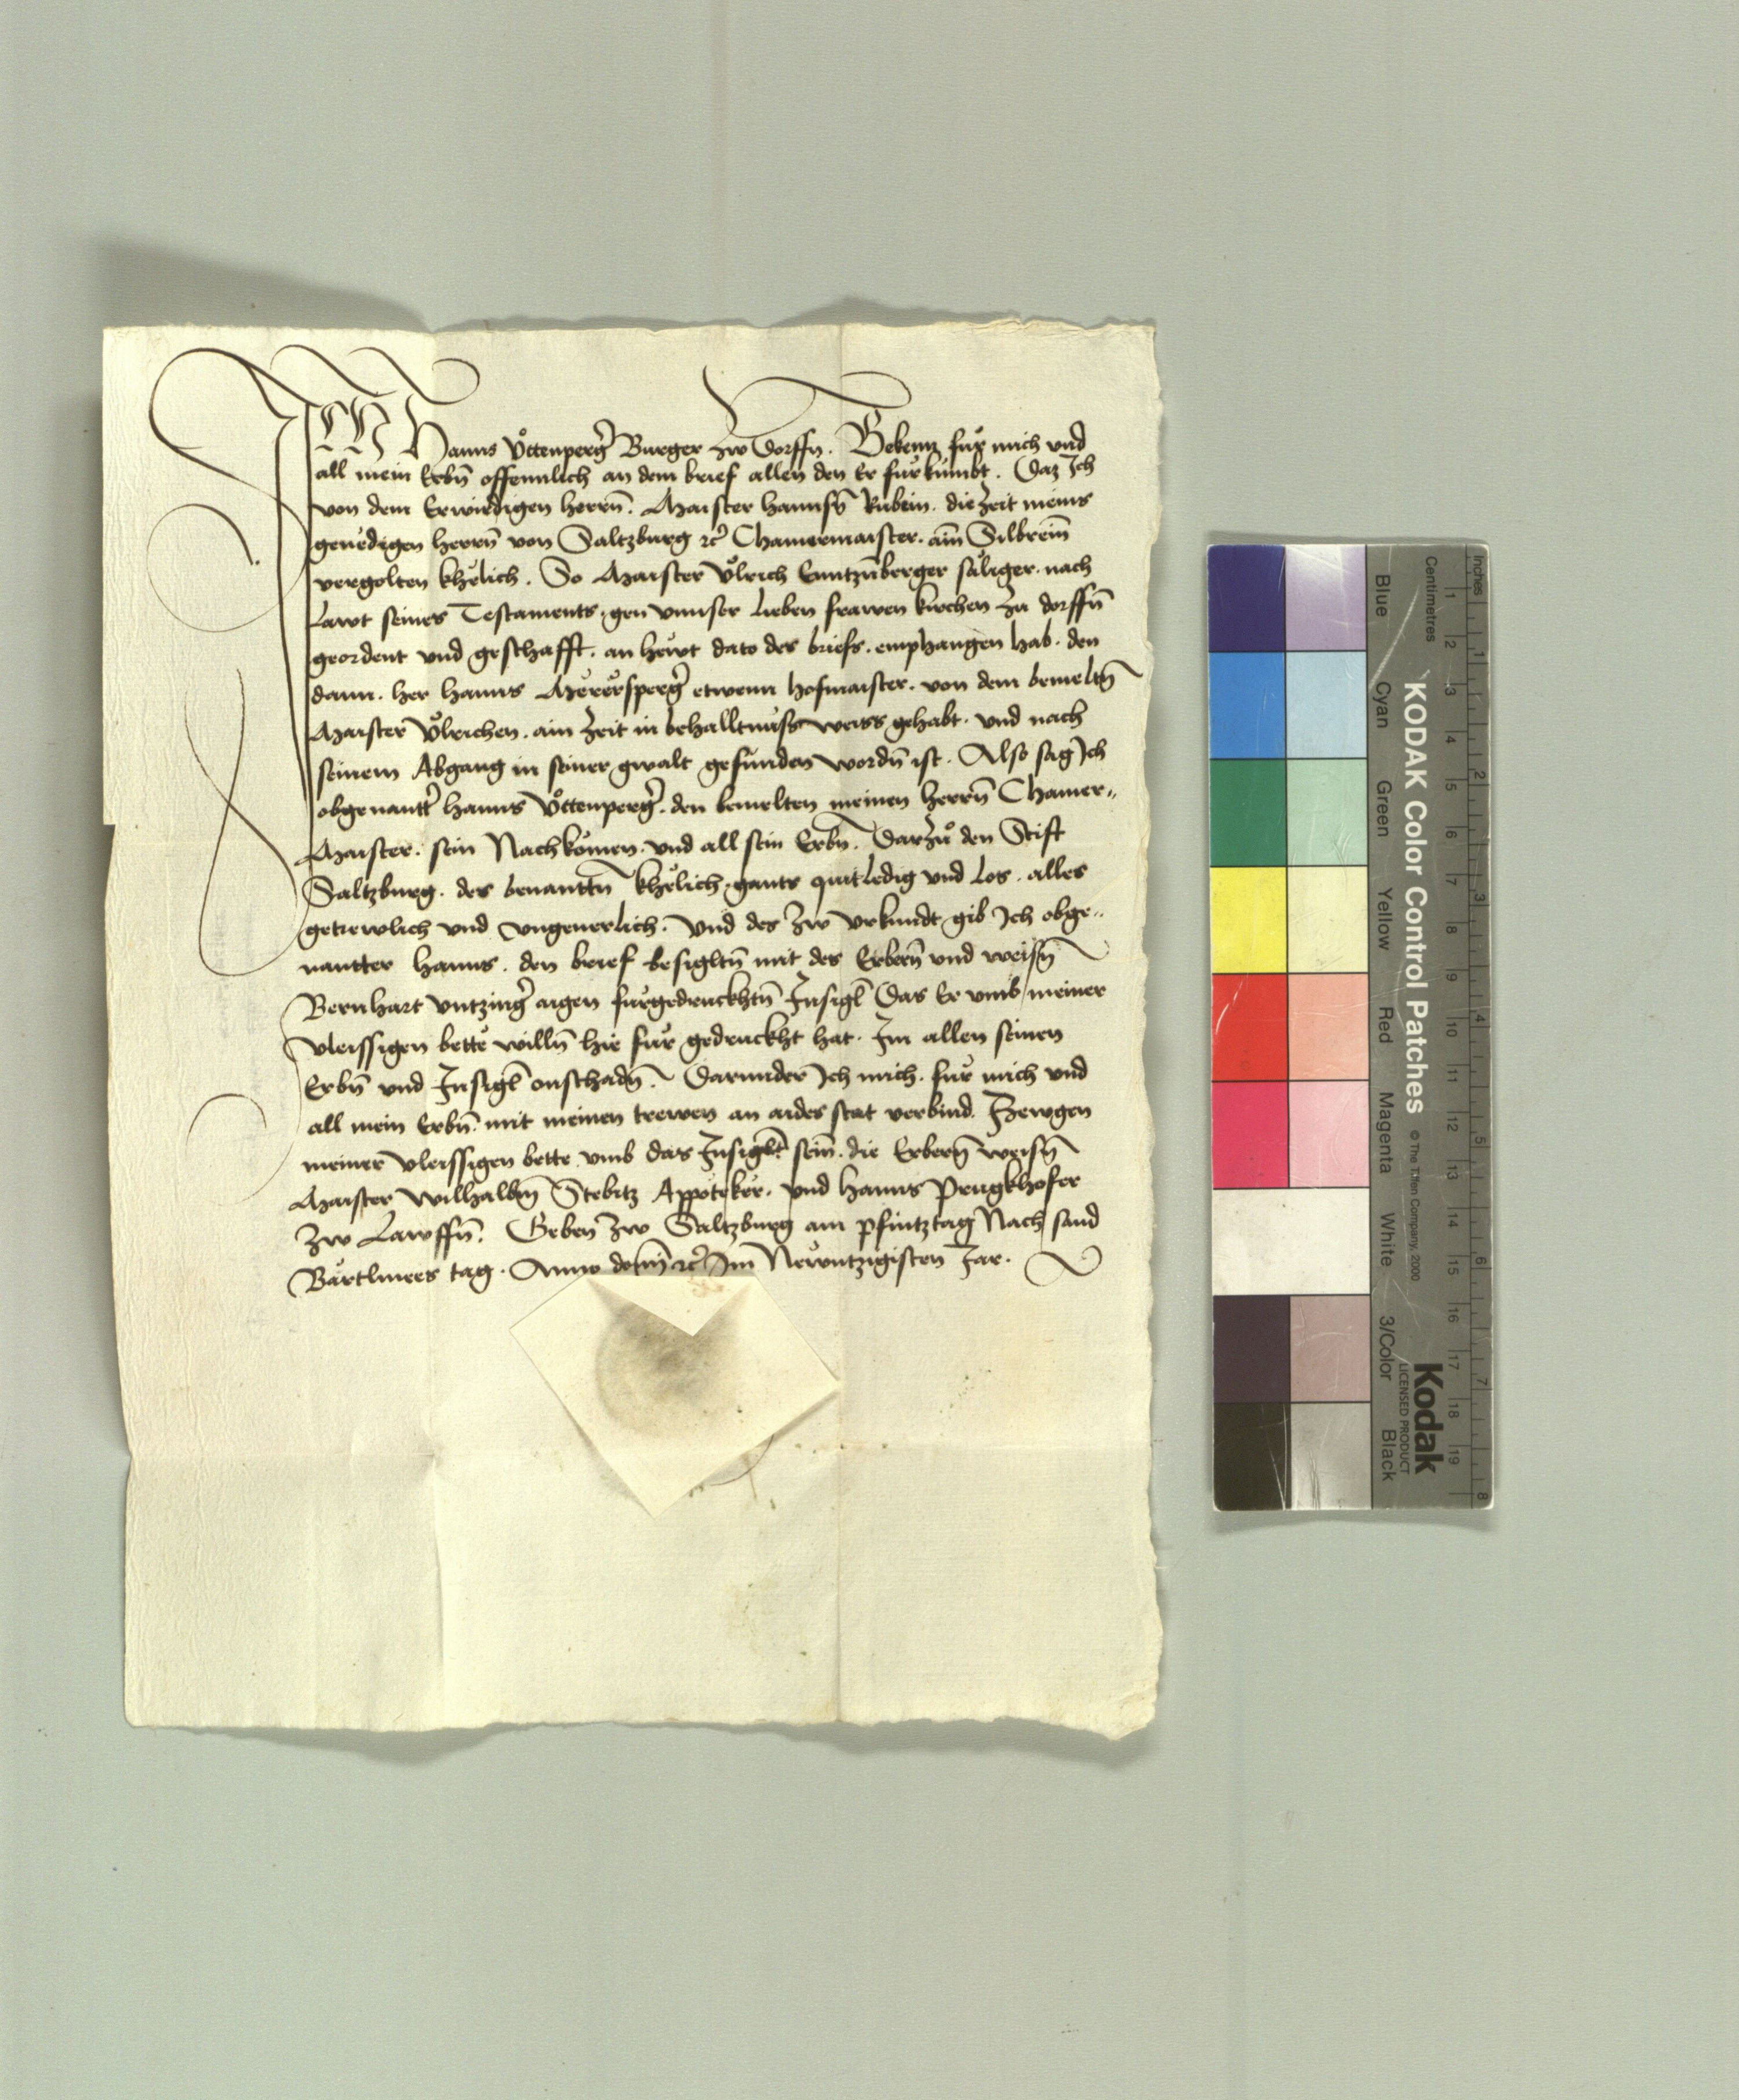 ICH Hanns Vͦttenperg̃ Burger zw Dorffn̄. Bekenn fuͤr mich vnd
all mein Erbn̄ offennlich an dem brief allen den Er fuͤrkumbt. Daz Ich
von dem Erwirdigen herrn̄. Maister Hannsn̄ Rubein. die zeit meins
genedigen herrn̄ von Saltzburg ꝛc̄ Chamermaister. ain̄ Silbrein̄
vergolten khelich. So Maister Vͦlrich säliger. nach
Lawt seines Testaments. gen vnnser Lieben frawen kirchen zu dorffn̄
geordent vnd geschafft. an hewt dato des briefs. emphangen hab. den
dann. her Hanns etwenn hofmaister. von dem bemeltn̄
Maister Vͦlreichen. ain zeit in behalltnuss weiss gehabt. vnd nach
seinem Abgang in seiner gwalt gefunden wordn̄ ist. Also sag Ich
obgenantt̄ Hanns Vͦttenperg̃. den bemelten meinen herrn̄ Chamer„
Maister. sein Nachkomen. vnd all sein Erbn̄. Darzuͦ den Stift
Saltzburg. des benanttn̄ khelich. gants quit Ledig vnd Los. alles
getrewlich vnd vngeuerlich. Vnd des zw vrkundt gib Ich obge„
nantter Hanns. den brief besigltn̄ mit des Erbern̄ vnd weisn̄
Bernhart vntzing̃ aigen fuͤrgedruckhtn̄ Insigl Das Er vmb meiner
vleissigen bette willn̄ hie fuͤr gedruckht hat. Im allen seinen
Erbn̄ vnd Insigl onschadn̄. Darunder Ich mich. fuͤr mich vnd
all mein Erbn̄. mit meinen trewen an aides stat verbind. Zewgen
meiner vleissigen bette vmb das Insigl sein̄. die Erbern̄ weisn̄
Maister Wilhalbm̄ Stebitz Appoteker. vnd Hanns Prugkhofer
zw Lawffn̄. Geben zw Saltzburg am Pfintztag Nach sand
Bärtlmees tag. Anno domī ꝛc̄ Im Newntzigisten Jar.
KODAK Color Control Patches
© The Tiffen Company, 2000
Kodak
LICENSED PRODUCT
Inches
1 2 3 4 5 6 7 8
Centimetres
1 2 3 4 5 6 7 8 9 10 11 12 13 14 15 16 17 18 19
Blue
Cyan
Green
Yellow
Red
Magenta
White
3/Color
Black